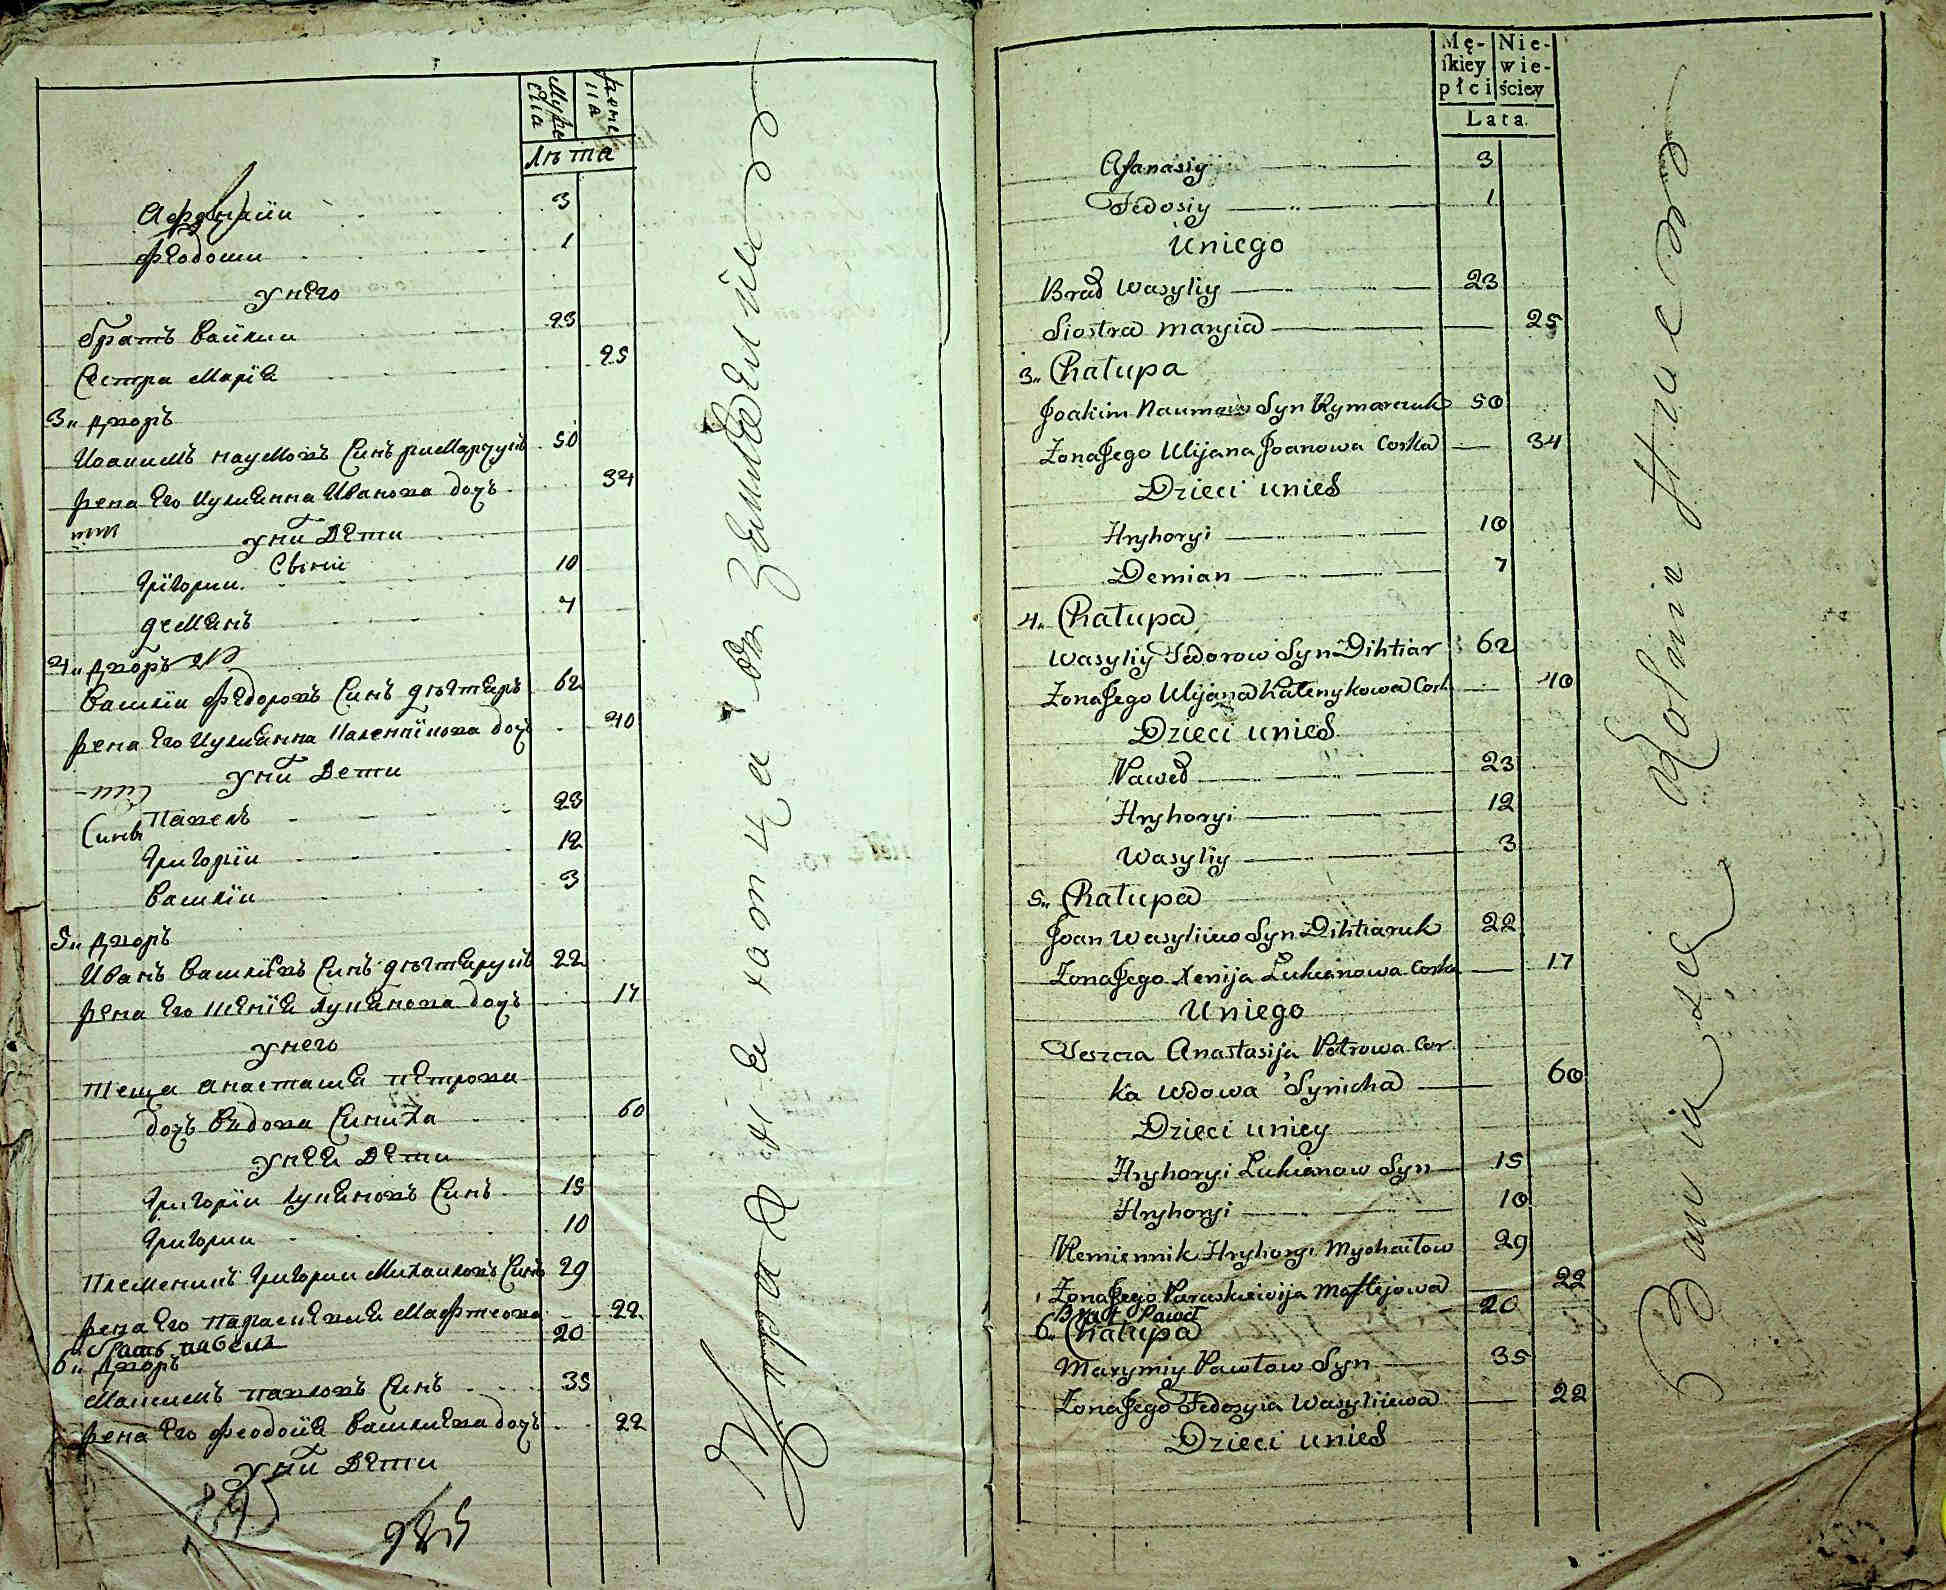 Муже
ска
жене
на
Лѣта
Афанасiи 3
Феодоси 1
У него
братъ Василии 23
Сестра Марiя 25
3„ Дворъ
Иоакимъ Наумовъ Синъ Римарчукъ 50
жена Его Иулиянна Иванова дочъ 34
У них Дети
Синi
Григории 10
Демянъ 7
4„ Дворъ
Василiи Федоровъ Синъ дѣгтяръ 62
жена Его Иулиянна Каленикова дочъ 40
У них Дети
Сины Павелъ 23
Григорiи 12
Василiи 3
5„ Дворъ
Иванъ Василiевъ Синъ дѣгтярукъ 22
жена Его Ксенiя Лукянова дочъ 17
У него
теща анастасия петрова
дочъ вдова Синиха 60
У неи Дети
Григорiи Лукяновъ Синъ 15
Григории 10
племеникъ Григории Михаиловъ Синъ 29
жена Его Параскевия Мафтеова 22
братъ павелъ 20
6„ Дворъ
Максимъ павловъ Синъ 35
жена Его Феодосiя Василиева дочъ 22
У них Дети
195
985
Mę-
skiey
płci
Nie-
wie-
ściey
Lata.
Afanasiy 3
Fedosiy 1
Uniego
Brad Wasyliy 23
Siostra Maryia 25
3„ Chałupa
Joakim Naumow Syn Rymarczuk 50
Zona Jego Ulijana Joanowa Corka 34
Dzieci unich
Hryhoryi 10
Demian 7
4„ Chałupa
Wasyliy Fedorow Syn Dihtiar 62
Zona Jego Ulijana Kalenykowa Cork 40
Dzieci unich
Paweł 23
Hryhoryi 12
Wasyliy 3
5„ Chałupa
Joan Wasyliiew Syn Dihtiaruk 22
Zona Jego Xenija Lukianowa Corka 17
Uniego
Teszcza Anastasija Petrowa Cor
ka wdowa Synicha 60
Dzieci uniey
Hryhoryi Lukianow Syn 15
Hryhoryi 10
Plemiennik Hryhoryi Mychaiłow 29
Zona Jego Paraskiewija Maftejowa 22
Brat Paweł 20
6„ Chałupa
Maxymiy Pawłow Syn 35
Zona Jego Fedosyia Wasyliiewa 22
Dzieci unich